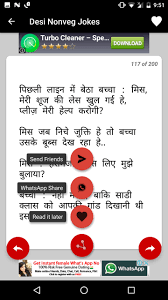 9:51
Desi Nonveg Jokes
Turbo Cleaner – Spe...
DOWNLOAD
117 of 200
पिछली लाइन में बेठा बच्चा : मिस,
मेरी शूज की लेस खुल गई हे,
प्लीज़ मेरी हेल्प करोगी?
मिस जब निचे जुक्ति हे तो बच्चा
उसके बूब्स देख रहा हे..
Send Friends
लिए मुझे
बुलाया?
WhatsApp Share
बच्चा
बाकि सार्डी
क्लास को आपकी गांड दिखानी थी
Read it later
Get Instant female What's App No
WhatsApp